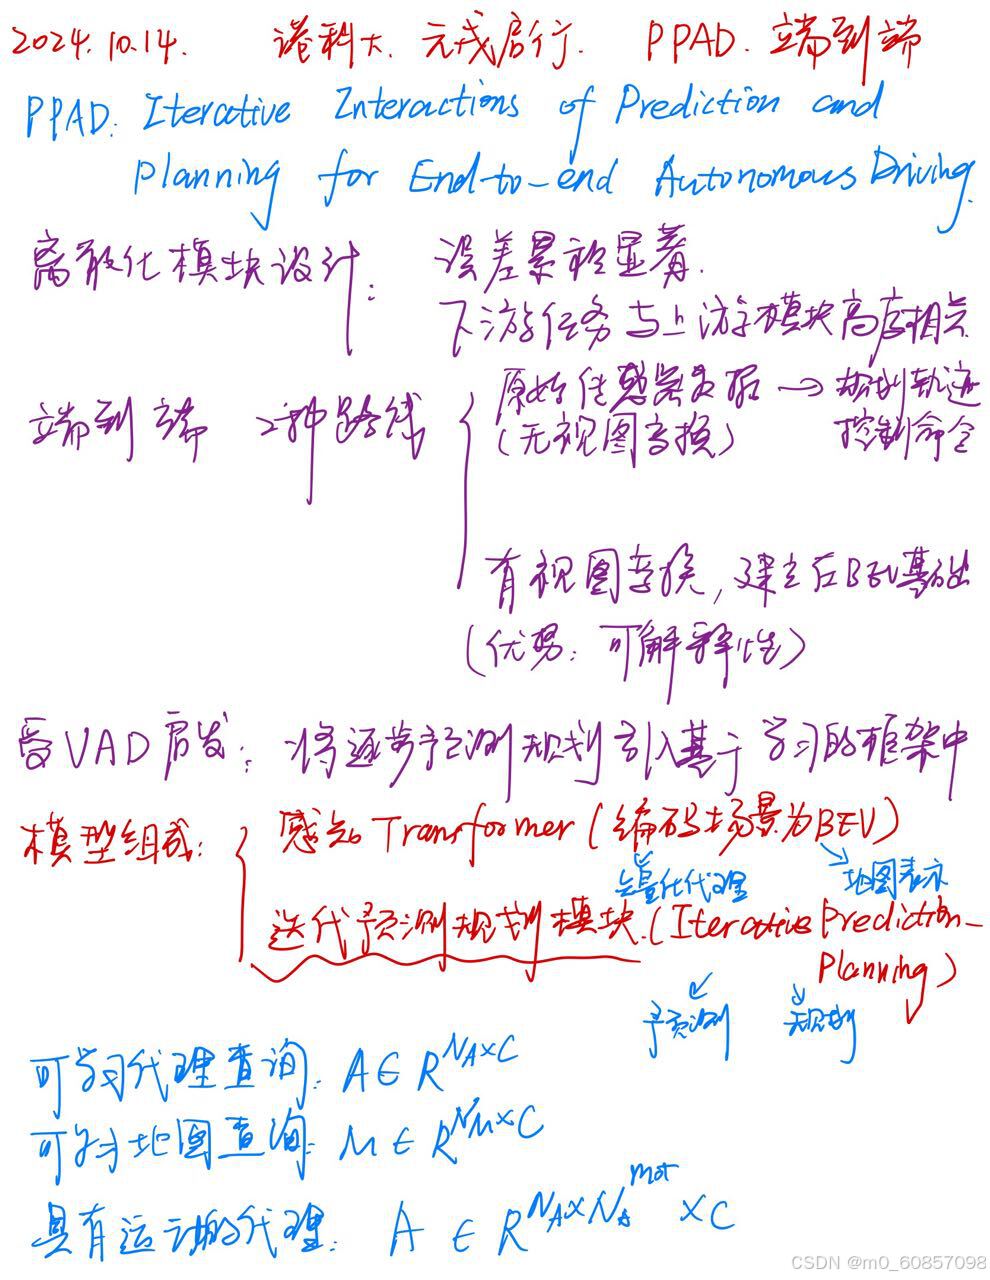 2024.10.14. 港科大. 元戎启行. PPAD. 端到端
PPAD: Iterative Interactions of Prediction and
Planning for End-to-end Autonomous Driving.
离散化模块设计: 误差累积显著.
下游任务与上游模块高度相关
端到端 2种路线
原始传感器数据 → 规划轨迹
(无视图变换) 控制命令
有视图变换, 建立在BEV基础
(优势: 可解释性)
受VAD启发: 将逐步预测规划引入基于学习的框架中
模型组成: 感知 Transformer (编码场景为BEV)
矢量化代理 地图表示
迭代预测规划模块. (Iterative Prediction-
Planning)
预测 规划
可学习代理查询: A ∈ R^{N_A×C}
可学习地图查询: M ∈ R^{N_M×C}
具有运动的代理: A ∈ R^{N_A×N_A^{mot}×C}
CSDN @m0_60857098